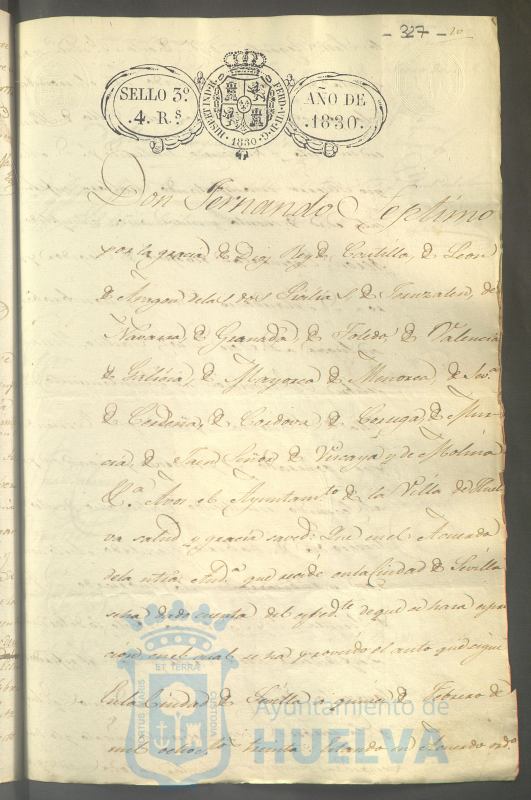 - 327 - 20
SELLO 3º
.4. R.s
HISP. ET IND. R. FERD. VII. D. G. 1830.
AÑO DE
.1830.
Don Fernando Septimo
por la gracia de Dios Rey de Castilla, de Leon
de Aragon de las dos Sicilias de Jeruzalen, de
Navarra, de Granada, de Toledo, de Valencia
de Galicia, de Mayorca de Menorca de Sev.a
de Cerdeña, de Cordova de Corsega, de Mur
cia, de Jaen Señor de Vizcaya y de Molina
&.a A vos el Ayuntam.to de la Villa de Huel
va salud y gracia saved: Que en el Acuerdo
dela ntra Aud.a que recide en la Ciudad de Sevilla
se ha dado cuenta del exped.te de que se hara espre
cion en el cual se ha proveido el auto que sigue
En la Ciudad de Sevilla a quince de Febrero de
mil ochoc.tos treinta Estando en Acuerdo ord.o
PORTUS MARIS
ET TERRÆ
CUSTODIA
Ayuntamiento de
HUELVA